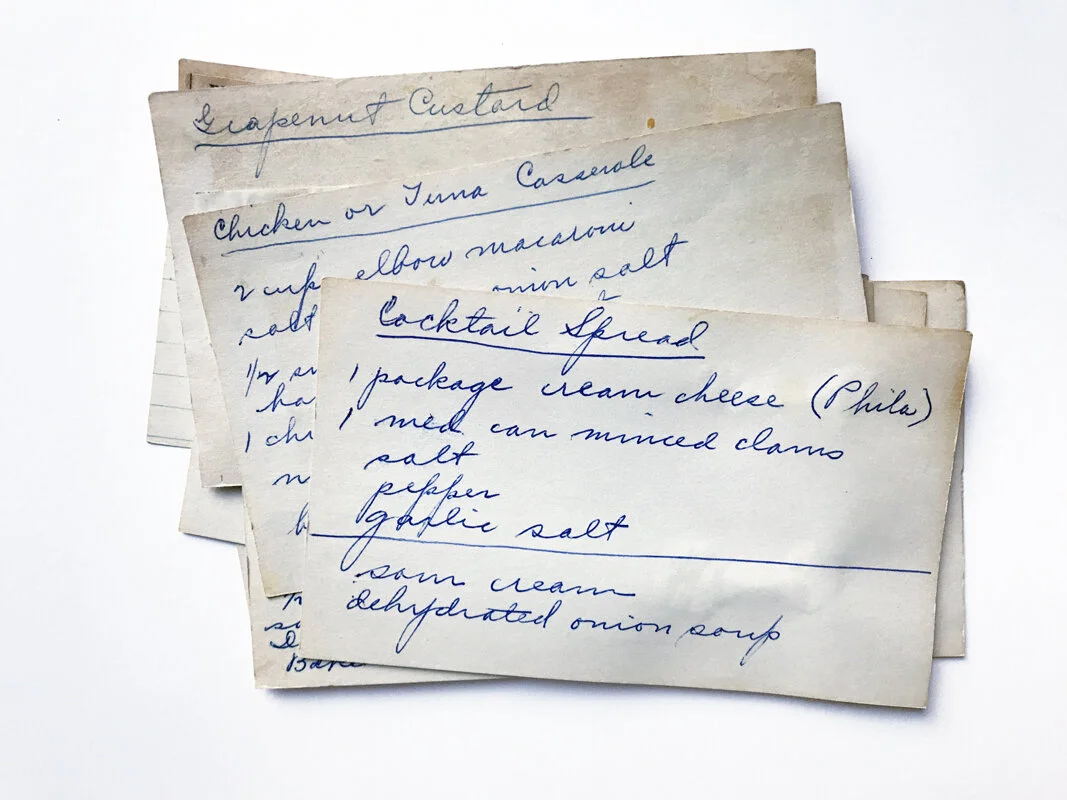 Grapenut Custard
Chicken or Tuna Casserole
2 cups elbow macaroni
salt onion salt
1/2
1
Cocktail Spread
1 package cream cheese (Phila)
1 med can minced clams
salt
pepper
garlic salt
sour cream
dehydrated onion soup
Bake